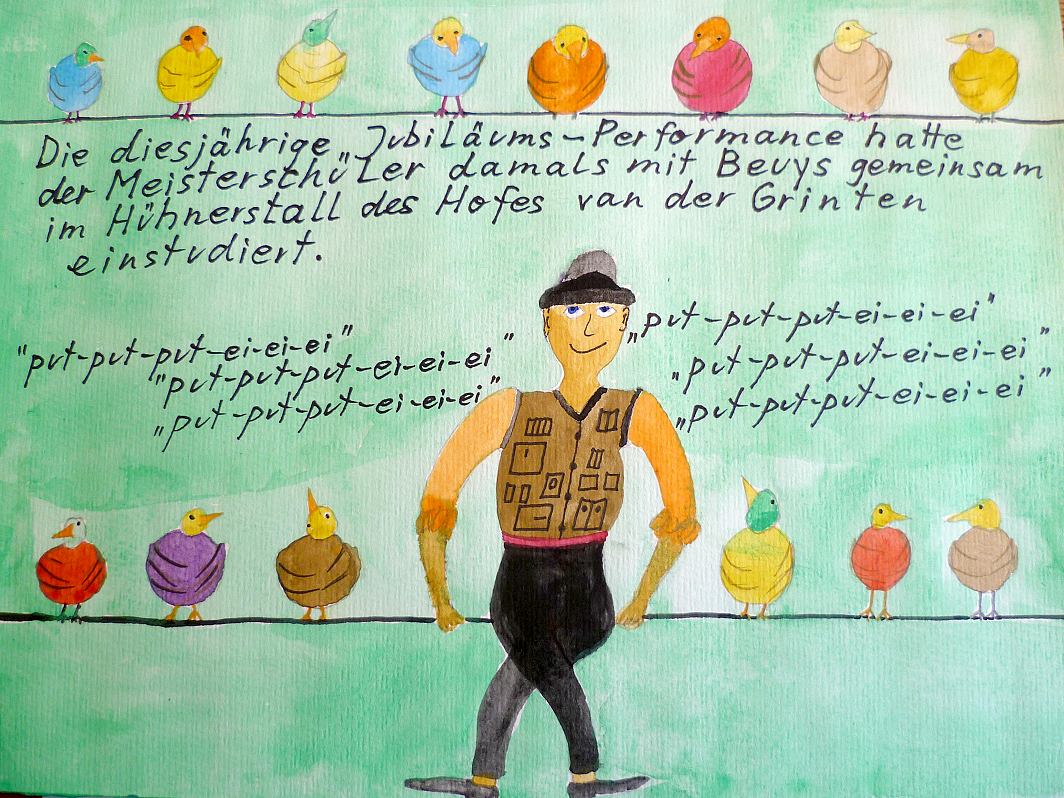 Die diesjährige Jubiläums-Performance hatte
der Meisterschüler damals mit Beuys gemeinsam
im Hühnerstall des Hofes van der Grinten
einstudiert.
"put-put-put-ei-ei-ei"
"put-put-put-ei-ei-ei"
"put-put-put-ei-ei-ei"
„put-put-put-ei-ei-ei"
„put-put-put-ei-ei-ei"
„put-put-put-ei-ei-ei"